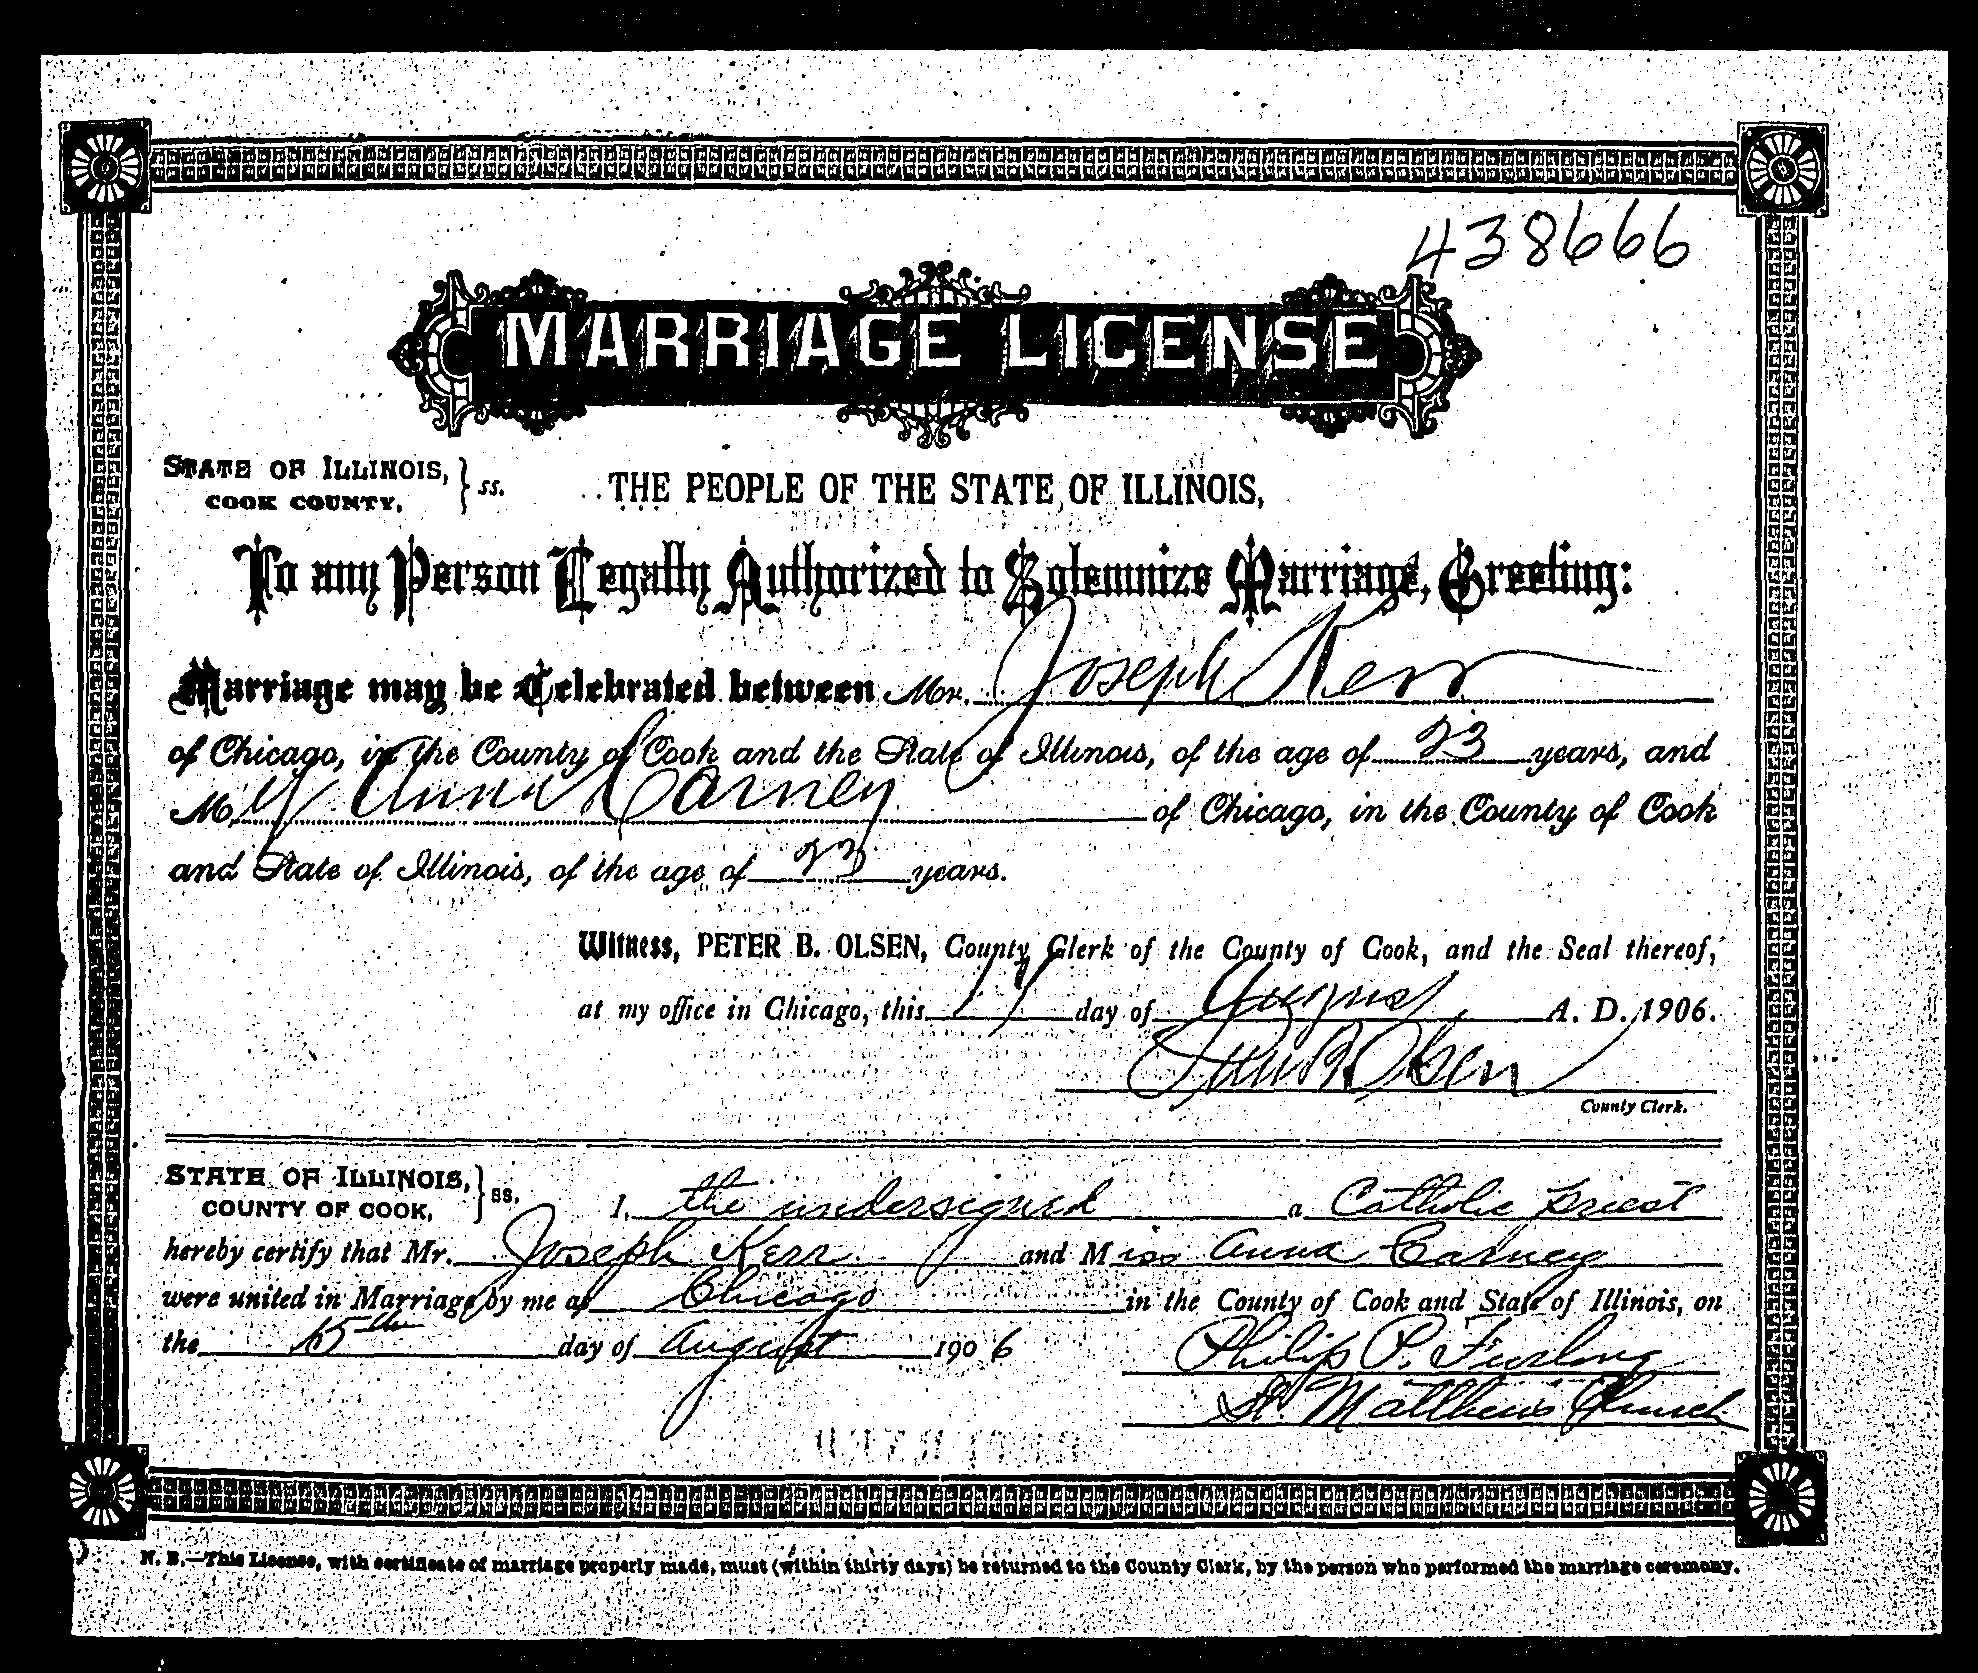 438666
MARRIAGE LICENSE
STATE OF ILLINOIS, } ss.
COOK COUNTY,
THE PEOPLE OF THE STATE OF ILLINOIS,
To any Person Legally Authorized to Solemnize Marriage, Greeting:
Marriage may be Celebrated between Mr. Joseph Kerr
of Chicago, in the County of Cook and the State of Illinois, of the age of 23 years, and
M Anna Carney of Chicago, in the County of Cook
and State of Illinois, of the age of 23 years.
Witness, PETER B. OLSEN, County Clerk of the County of Cook, and the Seal thereof,
at my office in Chicago, this day of August A. D. 1906.
Peter B. Olsen
County Clerk.
STATE OF ILLINOIS, } ss.
COUNTY OF COOK,
I, the undersigned a Catholic priest
hereby certify that Mr. Joseph Kerr and Miss Anna Carney
were united in Marriage by me at Chicago in the County of Cook and State of Illinois, on
the 15th day of August 1906
Philip P. Furlong
St. Matthews Church
N. B.—This License, with certificate of marriage properly made, must (within thirty days) be returned to the County Clerk, by the person who performed the marriage ceremony.